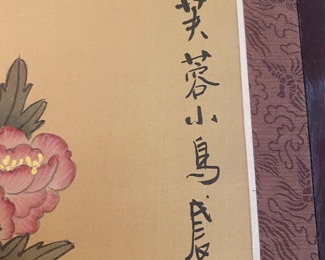 芙蓉小鳥